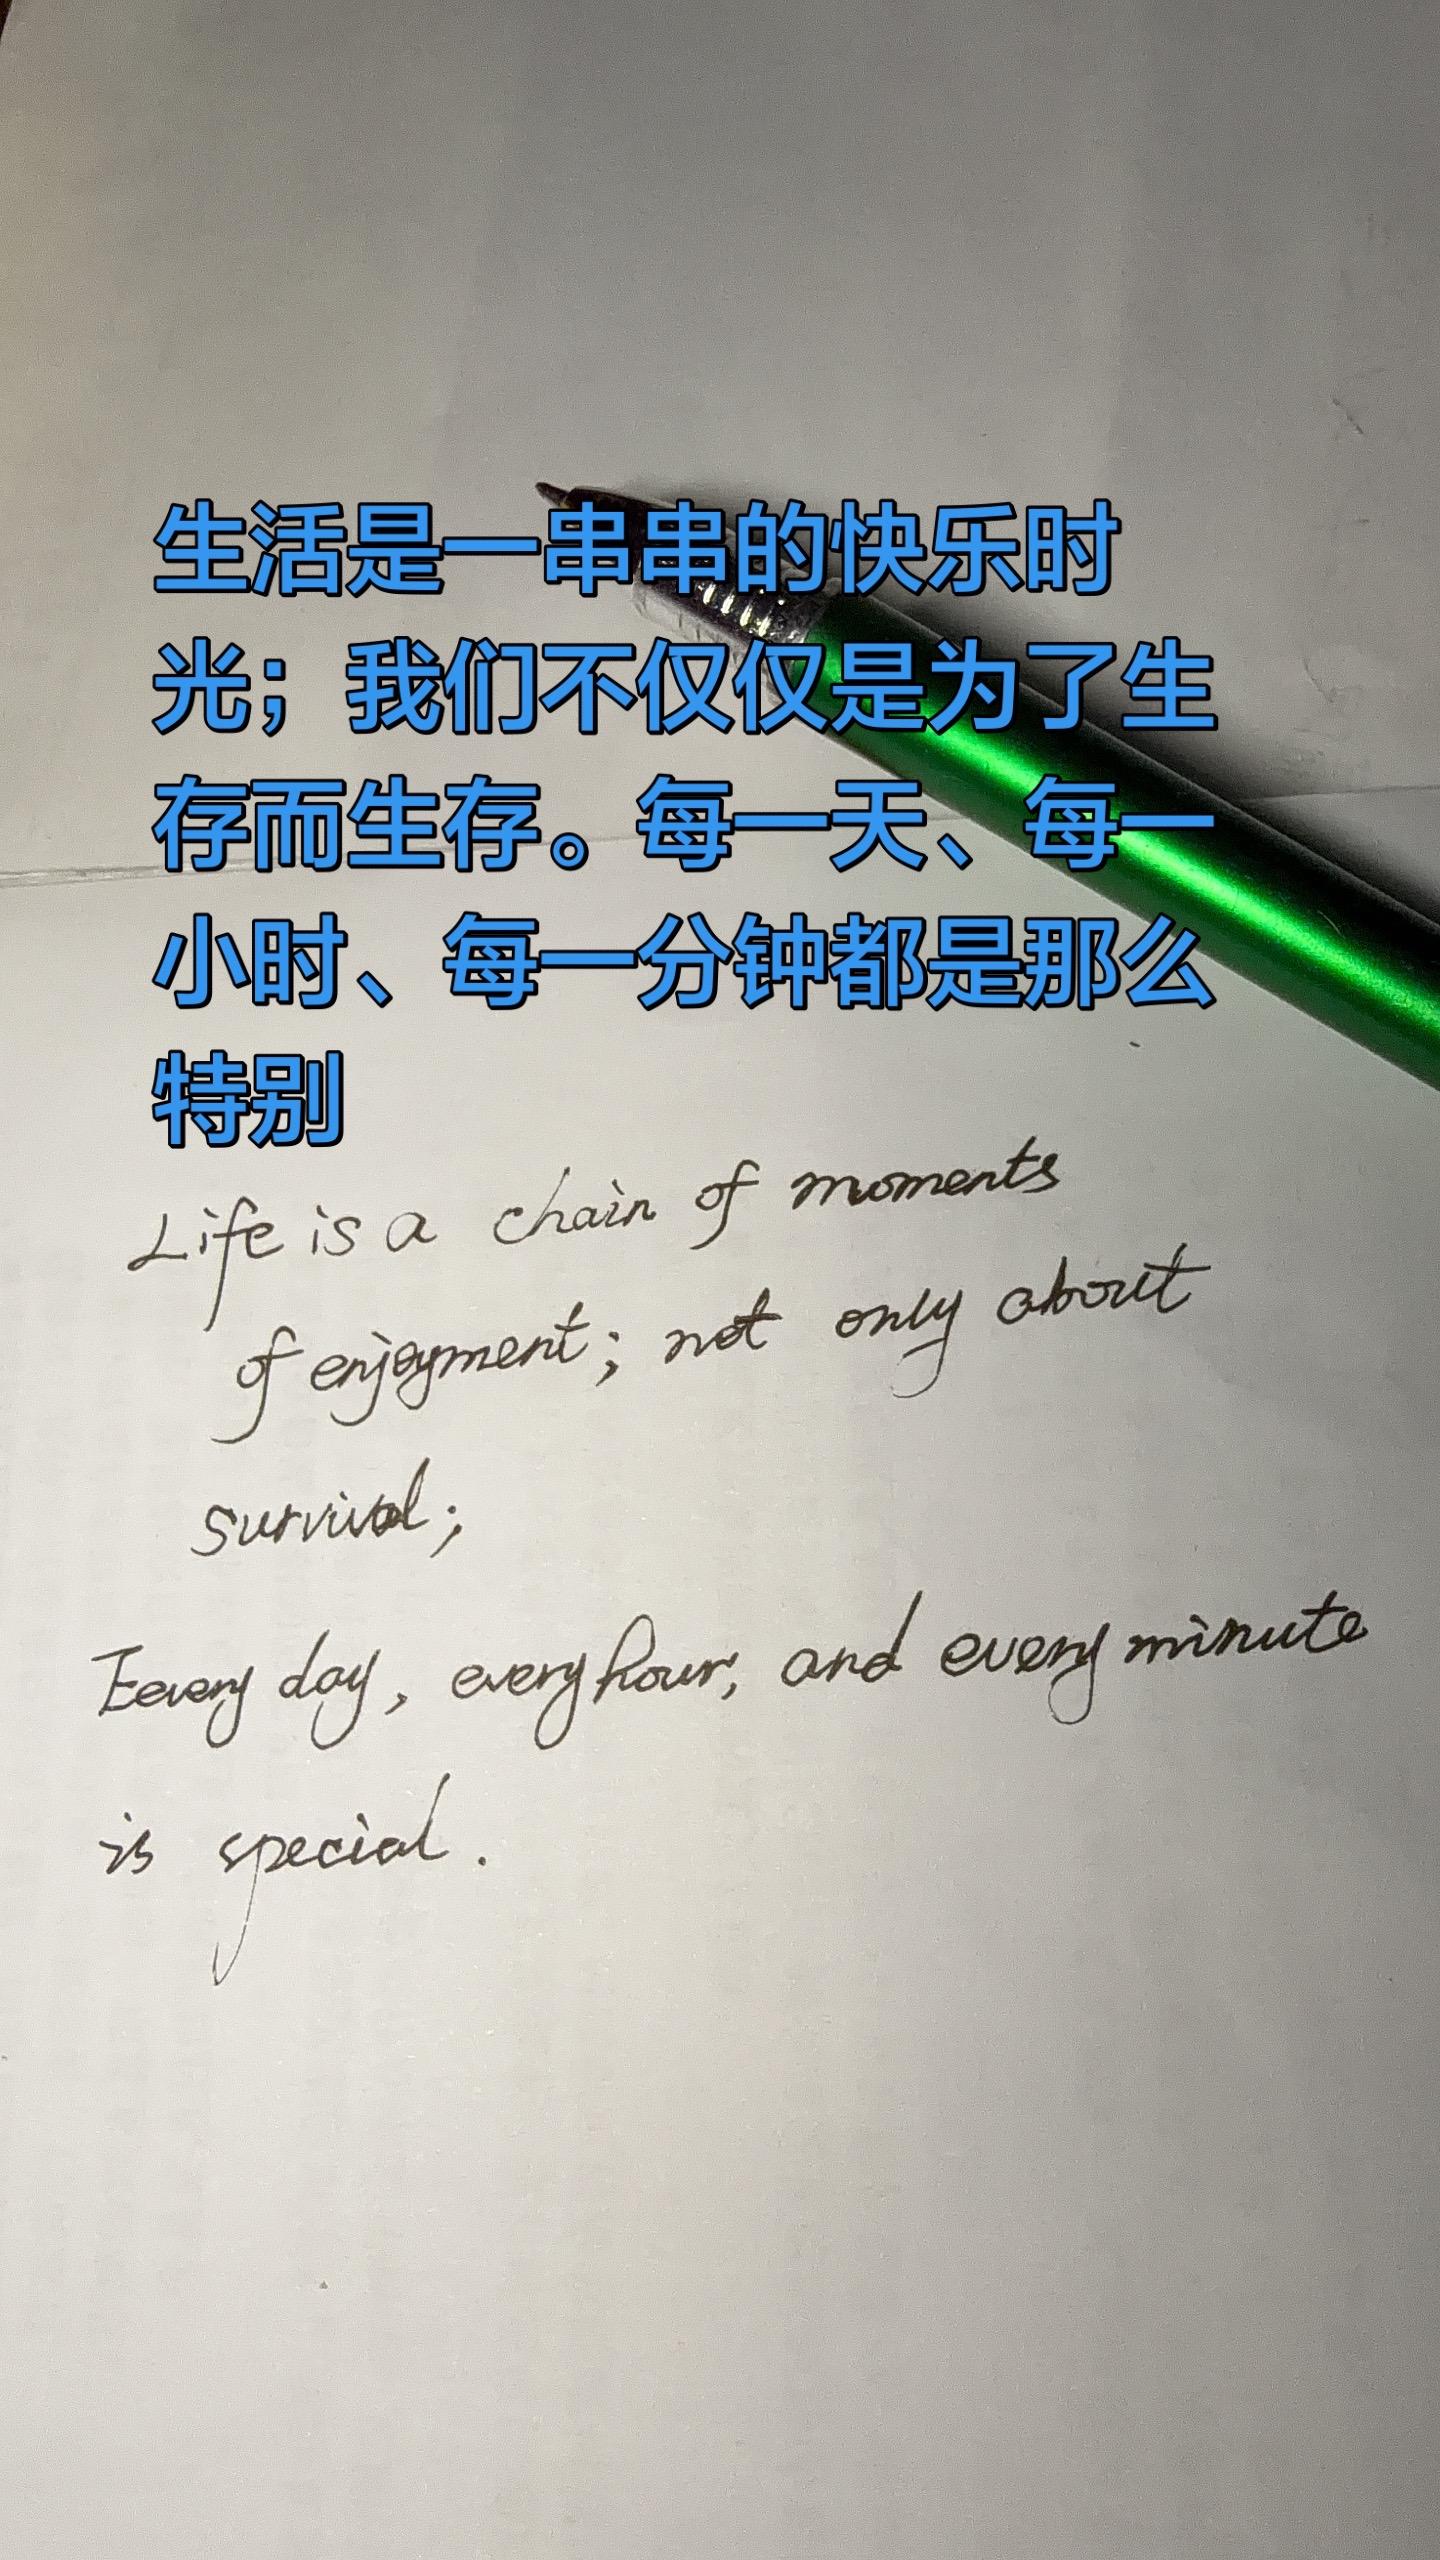 生活是一串串的快乐时
光；我们不仅仅是为了生
存而生存。每一天、每一
小时、每一分钟都是那么
特别
Life is a chain of moments
of enjoyment; not only about
survival;
Eevery day, every hour, and every minute
is special.